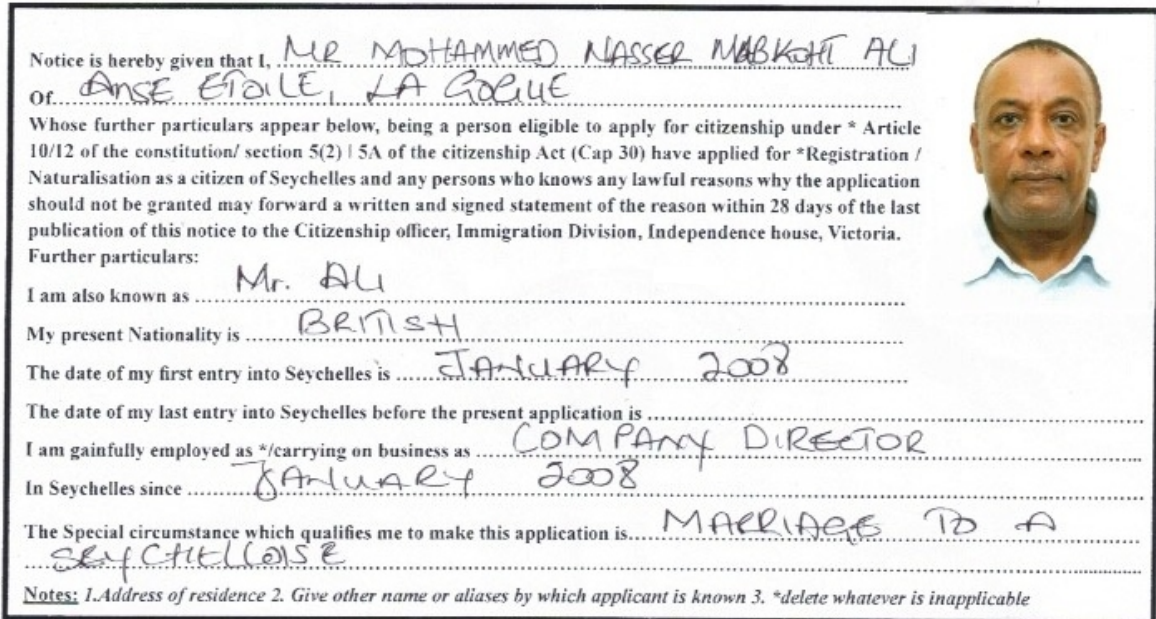 Notice is hereby given that I, MR MOHAMMED NASSER MABKOHT ALI
Of ANSE ETOILE, LA GOGUE
Whose further particulars appear below, being a person eligible to apply for citizenship under * Article
10/12 of the constitution/ section 5(2) | 5A of the citizenship Act (Cap 30) have applied for *Registration /
Naturalisation as a citizen of Seychelles and any persons who knows any lawful reasons why the application
should not be granted may forward a written and signed statement of the reason within 28 days of the last
publication of this notice to the Citizenship officer, Immigration Division, Independence house, Victoria.
Further particulars:
I am also known as Mr. ALI
My present Nationality is BRITISH
The date of my first entry into Seychelles is JANUARY 2008
The date of my last entry into Seychelles before the present application is
I am gainfully employed as */carrying on business as COMPANY DIRECTOR
In Seychelles since JANUARY 2008
The Special circumstance which qualifies me to make this application is MARRIAGE TO A
SEYCHELLOISE
Notes: 1.Address of residence 2. Give other name or aliases by which applicant is known 3. *delete whatever is inapplicable